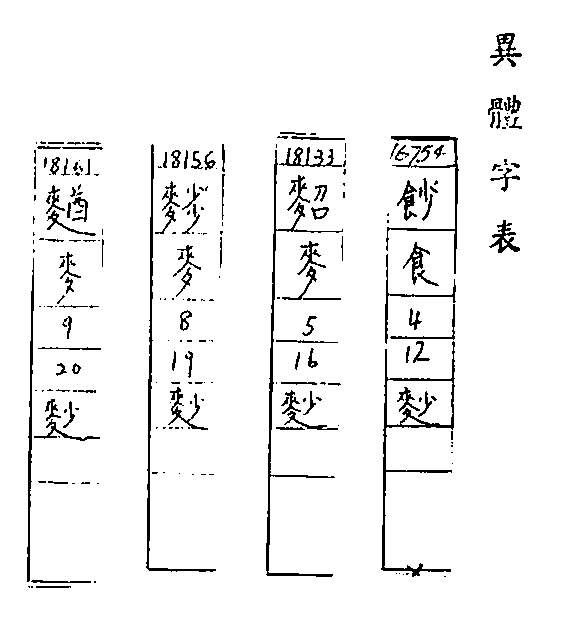 異體字表
16754
食
4
12
麨
18133
麥
5
16
麨
18156
麥
8
19
麨
18161
麥
9
20
麨